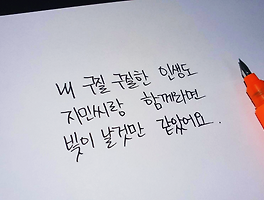 내 구질 구질한 인생도
지민씨랑 함께라면
빛이 날것만 같았어요.